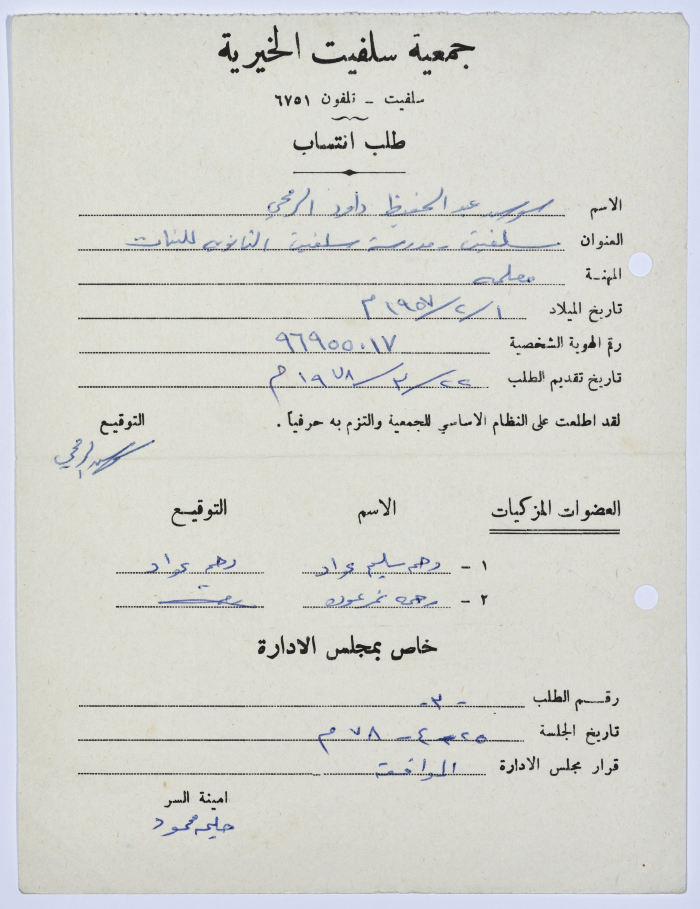 جمعية سلفيت الخيرية
سلفيت - تلفون ٦٧٥١
طلب انتساب
الاسم عبد الحفيظ داود الرمحي
العنوان سلفيت - مدرسة سلفيت الثانوية للبنات
المهنة معلمة
تاريخ الميلاد ١/٢/١٩٥٧ م
رقم الهوية الشخصية ٩٦٩٥٥٠١٧
تاريخ تقديم الطلب ٢٢/٣/١٩٧٨ م
لقد اطلعت على النظام الاساسي للجمعية والتزم به حرفياً . التوقيع
الرمحي
العضوات المزكيات الاسم التوقيع
١ - سليم عواد عواد
٢ -
خاص بمجلس الادارة
رقم الطلب -٣-
تاريخ الجلسة ٢٥-٤-٧٨ م
قرار مجلس الادارة الموافقة
امينة السر
حليمه محمود